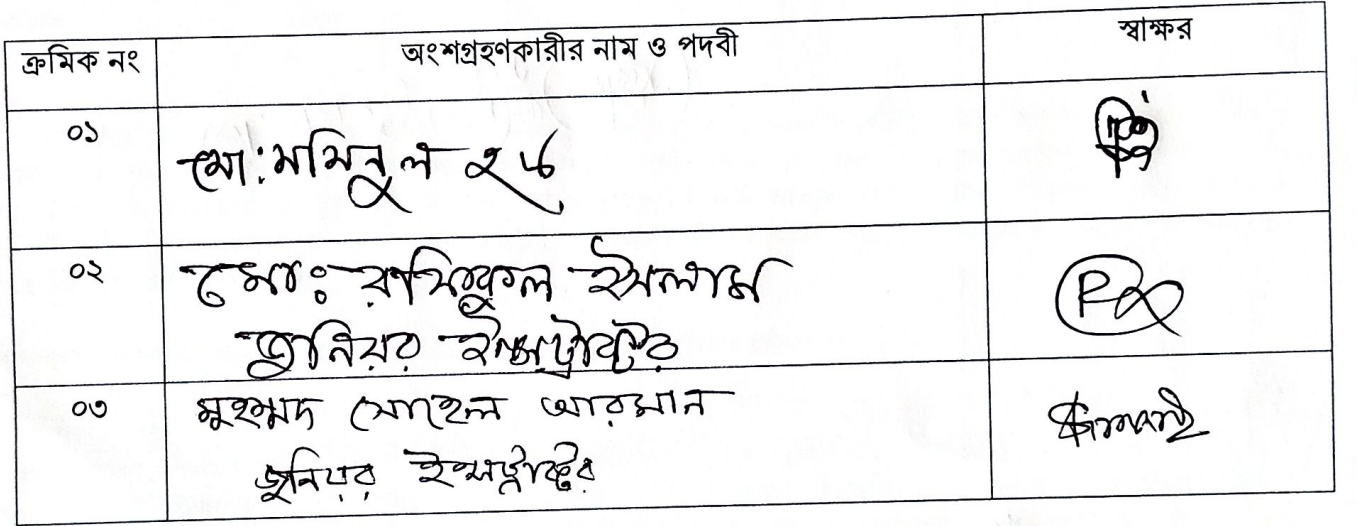 ক্রমিক নং অংশগ্রহণকারীর নাম ও পদবী স্বাক্ষর
০১ মো: মমিনুল হক
০২ মোঃ রফিকুল ইসলাম
জুনিয়র ইন্সট্রাক্টর
০৩ মুহম্মদ সোহেল আরমান
জুনিয়র ইন্সট্রাক্টর